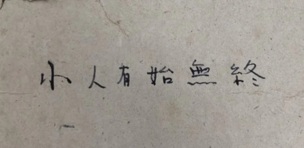 小人有始無終